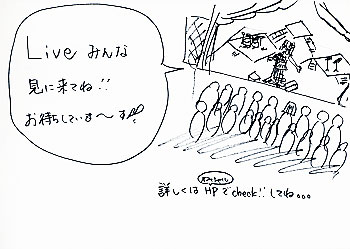 Live みんな
見に来てね!!
お待ちしていま〜す!!
オフィシャル
詳しくは HPでcheck!!してね...